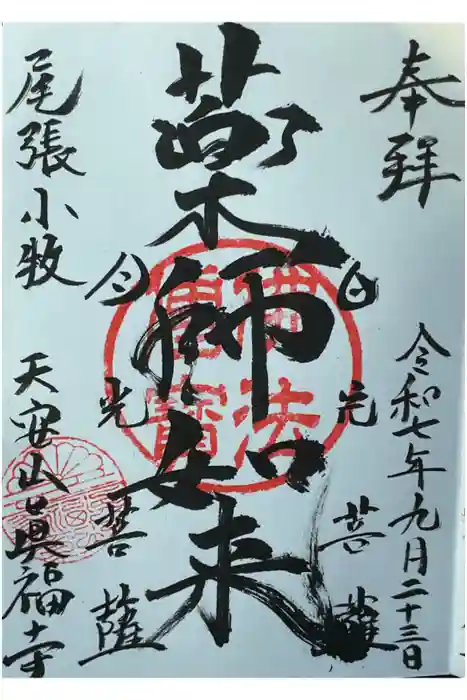 奉拜
令和七年九月二十三日
日光菩薩
薬師如来
佛法僧寶
月光菩薩
尾張小牧
天安山眞福寺